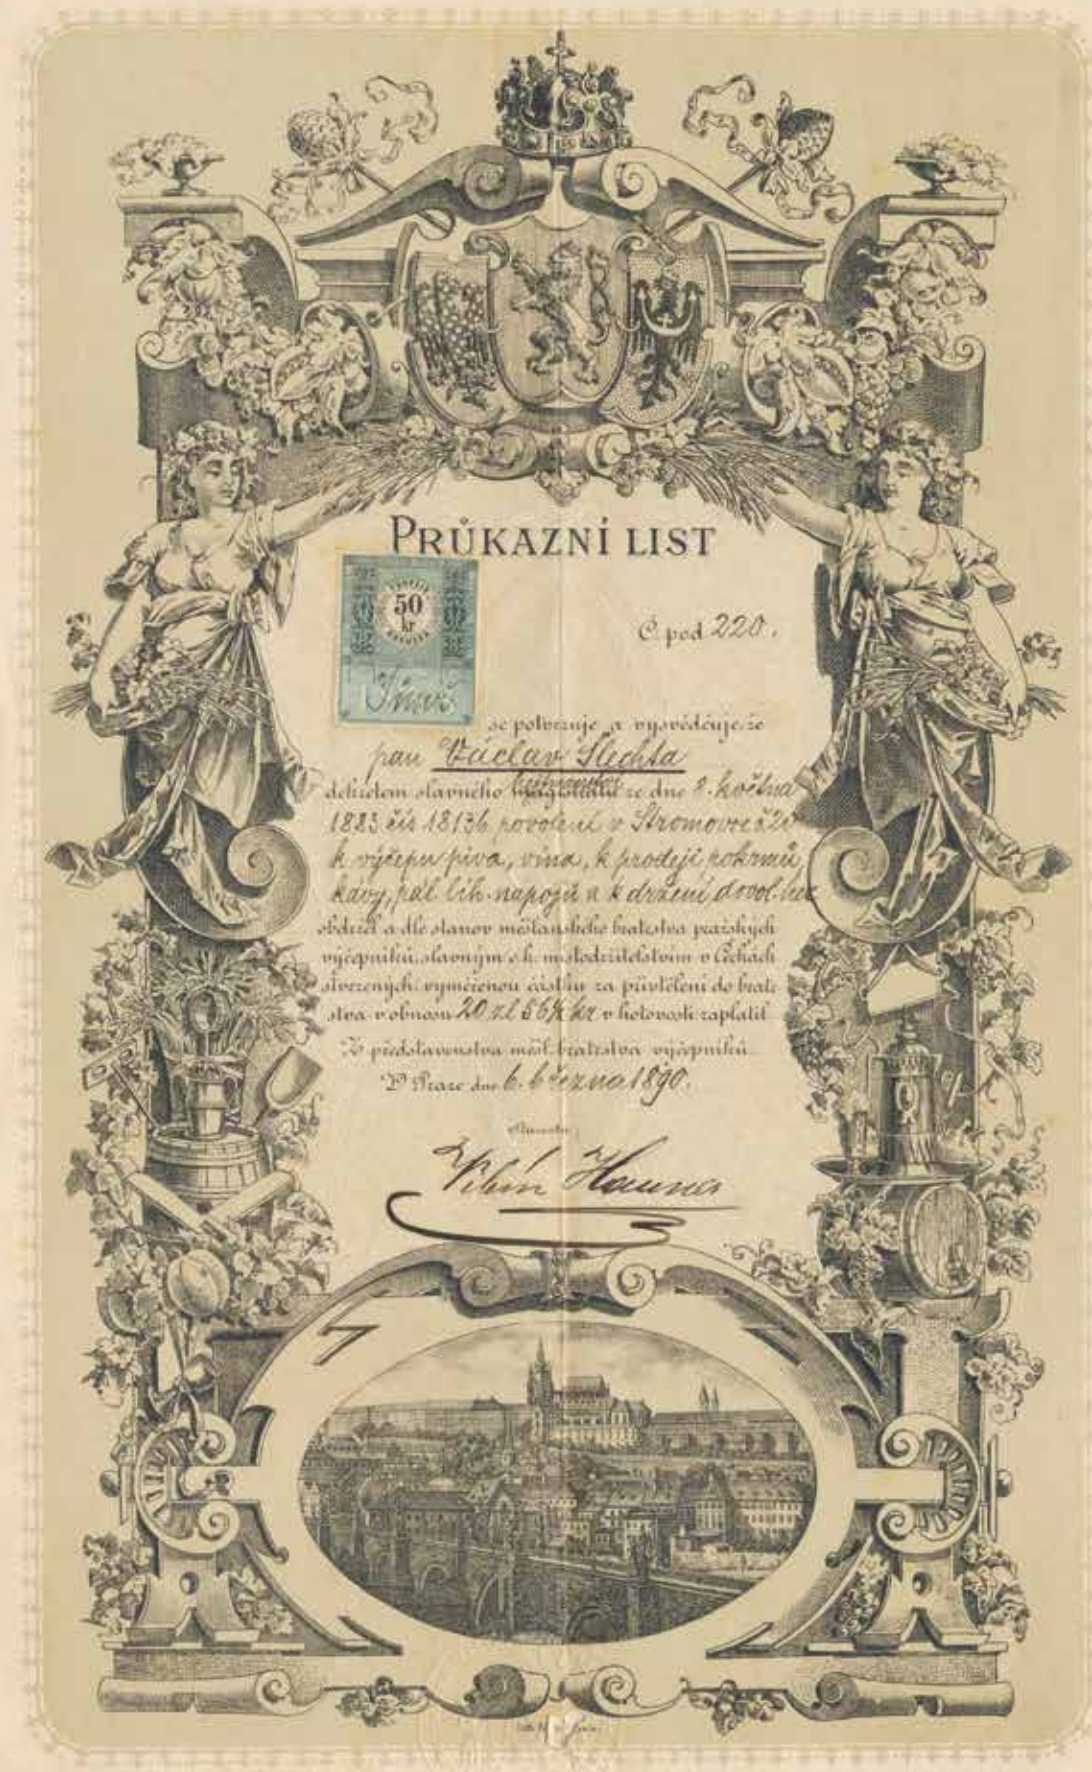 PRŮKAZNÍ LIST
50
kr
Č. pod. 220.
se potvrzuje a vysvědčuje že
pan Václav Šlechta
dekretem slavného ze dne 8. května
1883 čís 18136 povolení v Stromovce č 20
k výčepu piva, vína, k prodeji pokrmů,
kávy, pál. lih. nápojů a k držení dovol. her
obdržel a dle stanov měšťanského bratrstva pražských
výčepníků, slavným c. k. místodržitelstvím v Čechách
stvrzených, vyměřenou částku za přivtělení do bratr-
stva v obnosu 20 zl 56½ kr v hotovosti zaplatil
Z představenstva měšť. bratrstva výčepníků
V Praze dne 6. března 1890.
Starosta:
Hamner